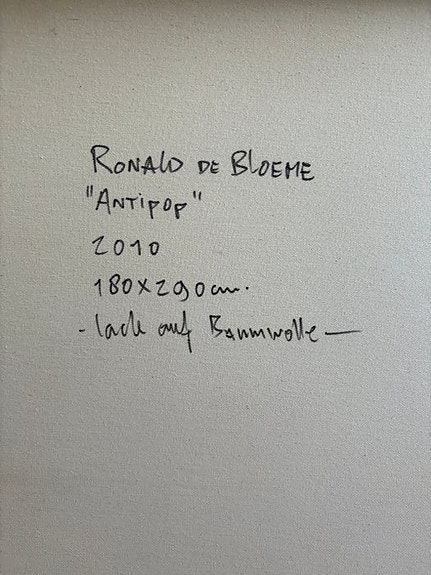 RONALD DE BLOEME
"ANTIPOP"
2010
180x290cm.
- lack auf Baumwolle —